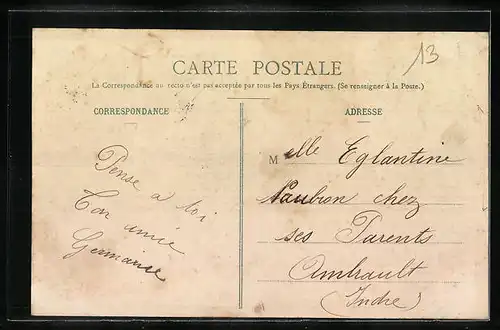 13
CARTE POSTALE
La Correspondance au recto n'est pas acceptée par tous les Pays Étrangers. (Se renseigner à la Poste.)
CORRESPONDANCE
ADRESSE
Pense a toi
Ton amie
Germaine
Melle Eglantine
chez
ses Parents
Ambrault
(Indre)